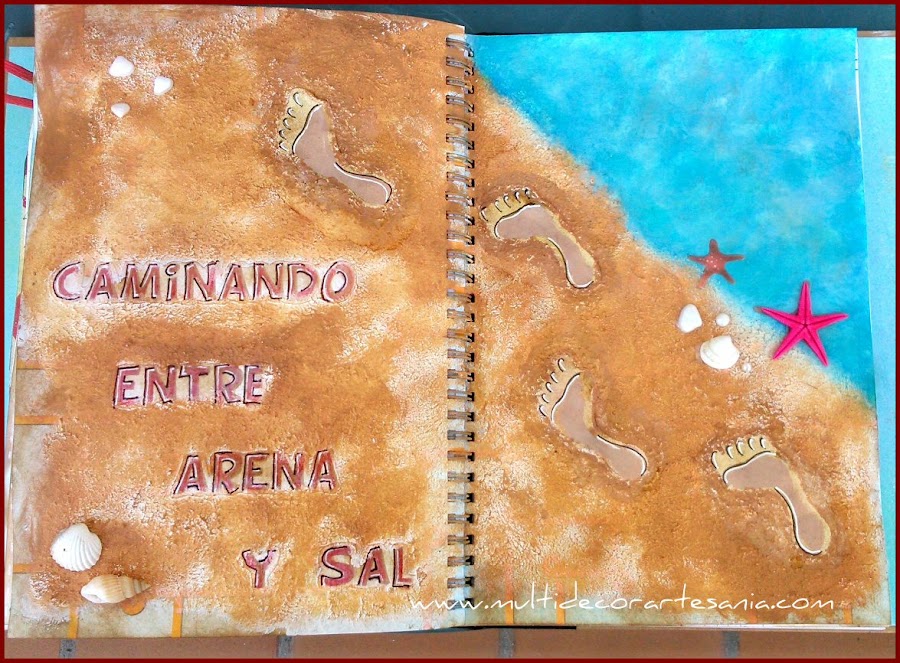 CAMiNANDO
ENTRE
ARENA
Y SAL
www.multidecorartesania.com